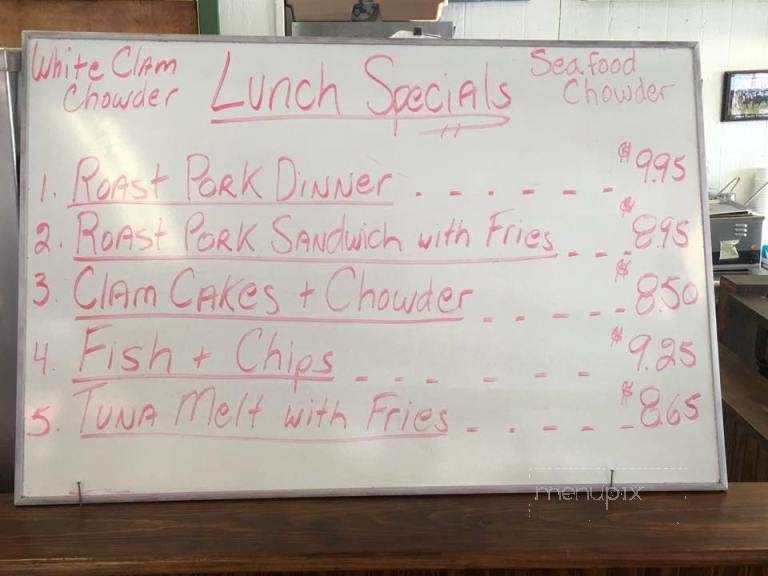 White Clam Chowder
Lunch Specials
Seafood Chowder
1. Roast Pork Dinner . - - - - - $9.95
2. Roast Pork Sandwich with Fries - - - $8.95
3. Clam Cakes + Chowder - - - - - $8.50
4. Fish + Chips - - - - - - $9.25
5. Tuna Melt with Fries - - - - - $8.65
menupix